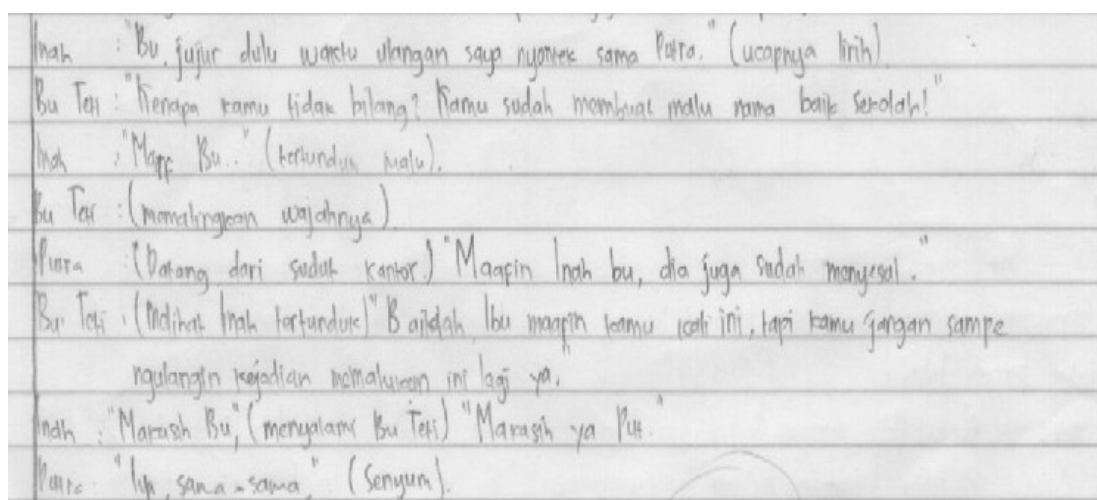 Inah : "Bu, jujur dulu waktu ulangan saya nyontek sama Putra." (ucapnya lirih)
Bu Teti : "Kenapa kamu tidak bilang? Kamu sudah membuat malu nama baik sekolah!"
Inah : "Maap Bu.." (tertunduk malu).
Bu Teti : (memalingkan wajahnya)
Putra : (Datang dari sudut kantor) "Maapin Inah bu, dia juga sudah menyesal."
Bu Teti : (Melihat Inah tertunduk) "Baiklah Ibu maapin kamu kali ini, tapi kamu jangan sampe
ngulangin kejadian memalukan ini lagi ya."
Inah : "Makasih Bu", (menyalami Bu Teti) "Makasih ya Put."
Putra "Iya, sama-sama," (Senyum).